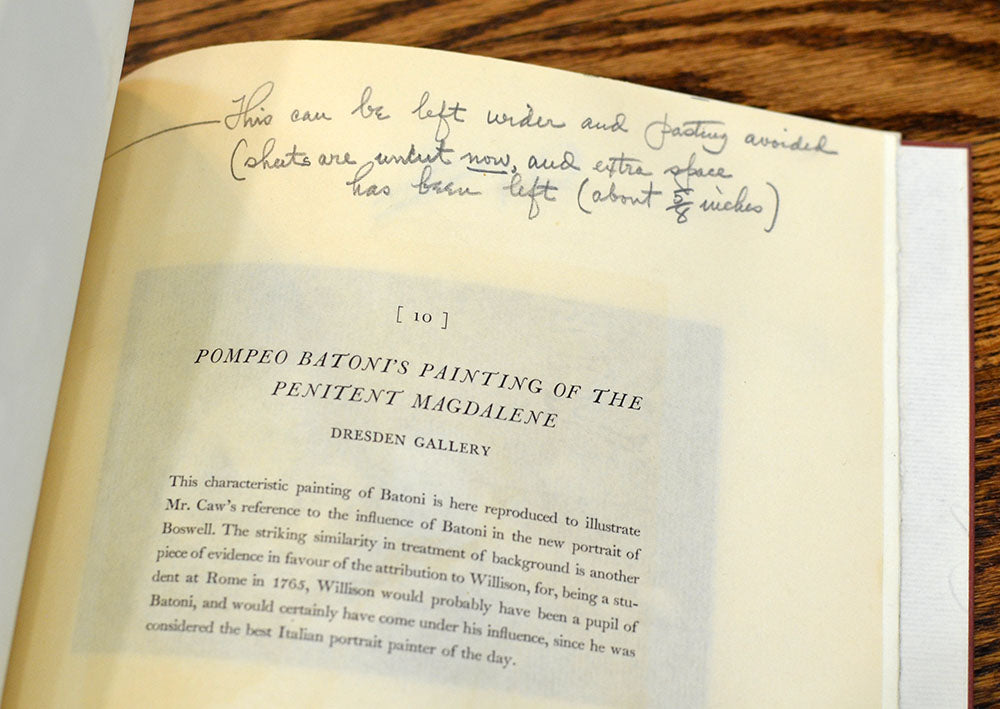 This can be left wider and pasting avoided
(sheets are uncut now, and extra space
has been left (about 5/8 inches)
[ 10 ]
POMPEO BATONI'S PAINTING OF THE
PENITENT MAGDALENE
DRESDEN GALLERY
This characteristic painting of Batoni is here reproduced to illustrate
Mr. Caw's reference to the influence of Batoni in the new portrait of
Boswell. The striking similarity in treatment of background is another
piece of evidence in favour of the attribution to Willison, for, being a stu-
dent at Rome in 1765, Willison would probably have been a pupil of
Batoni, and would certainly have come under his influence, since he was
considered the best Italian portrait painter of the day.